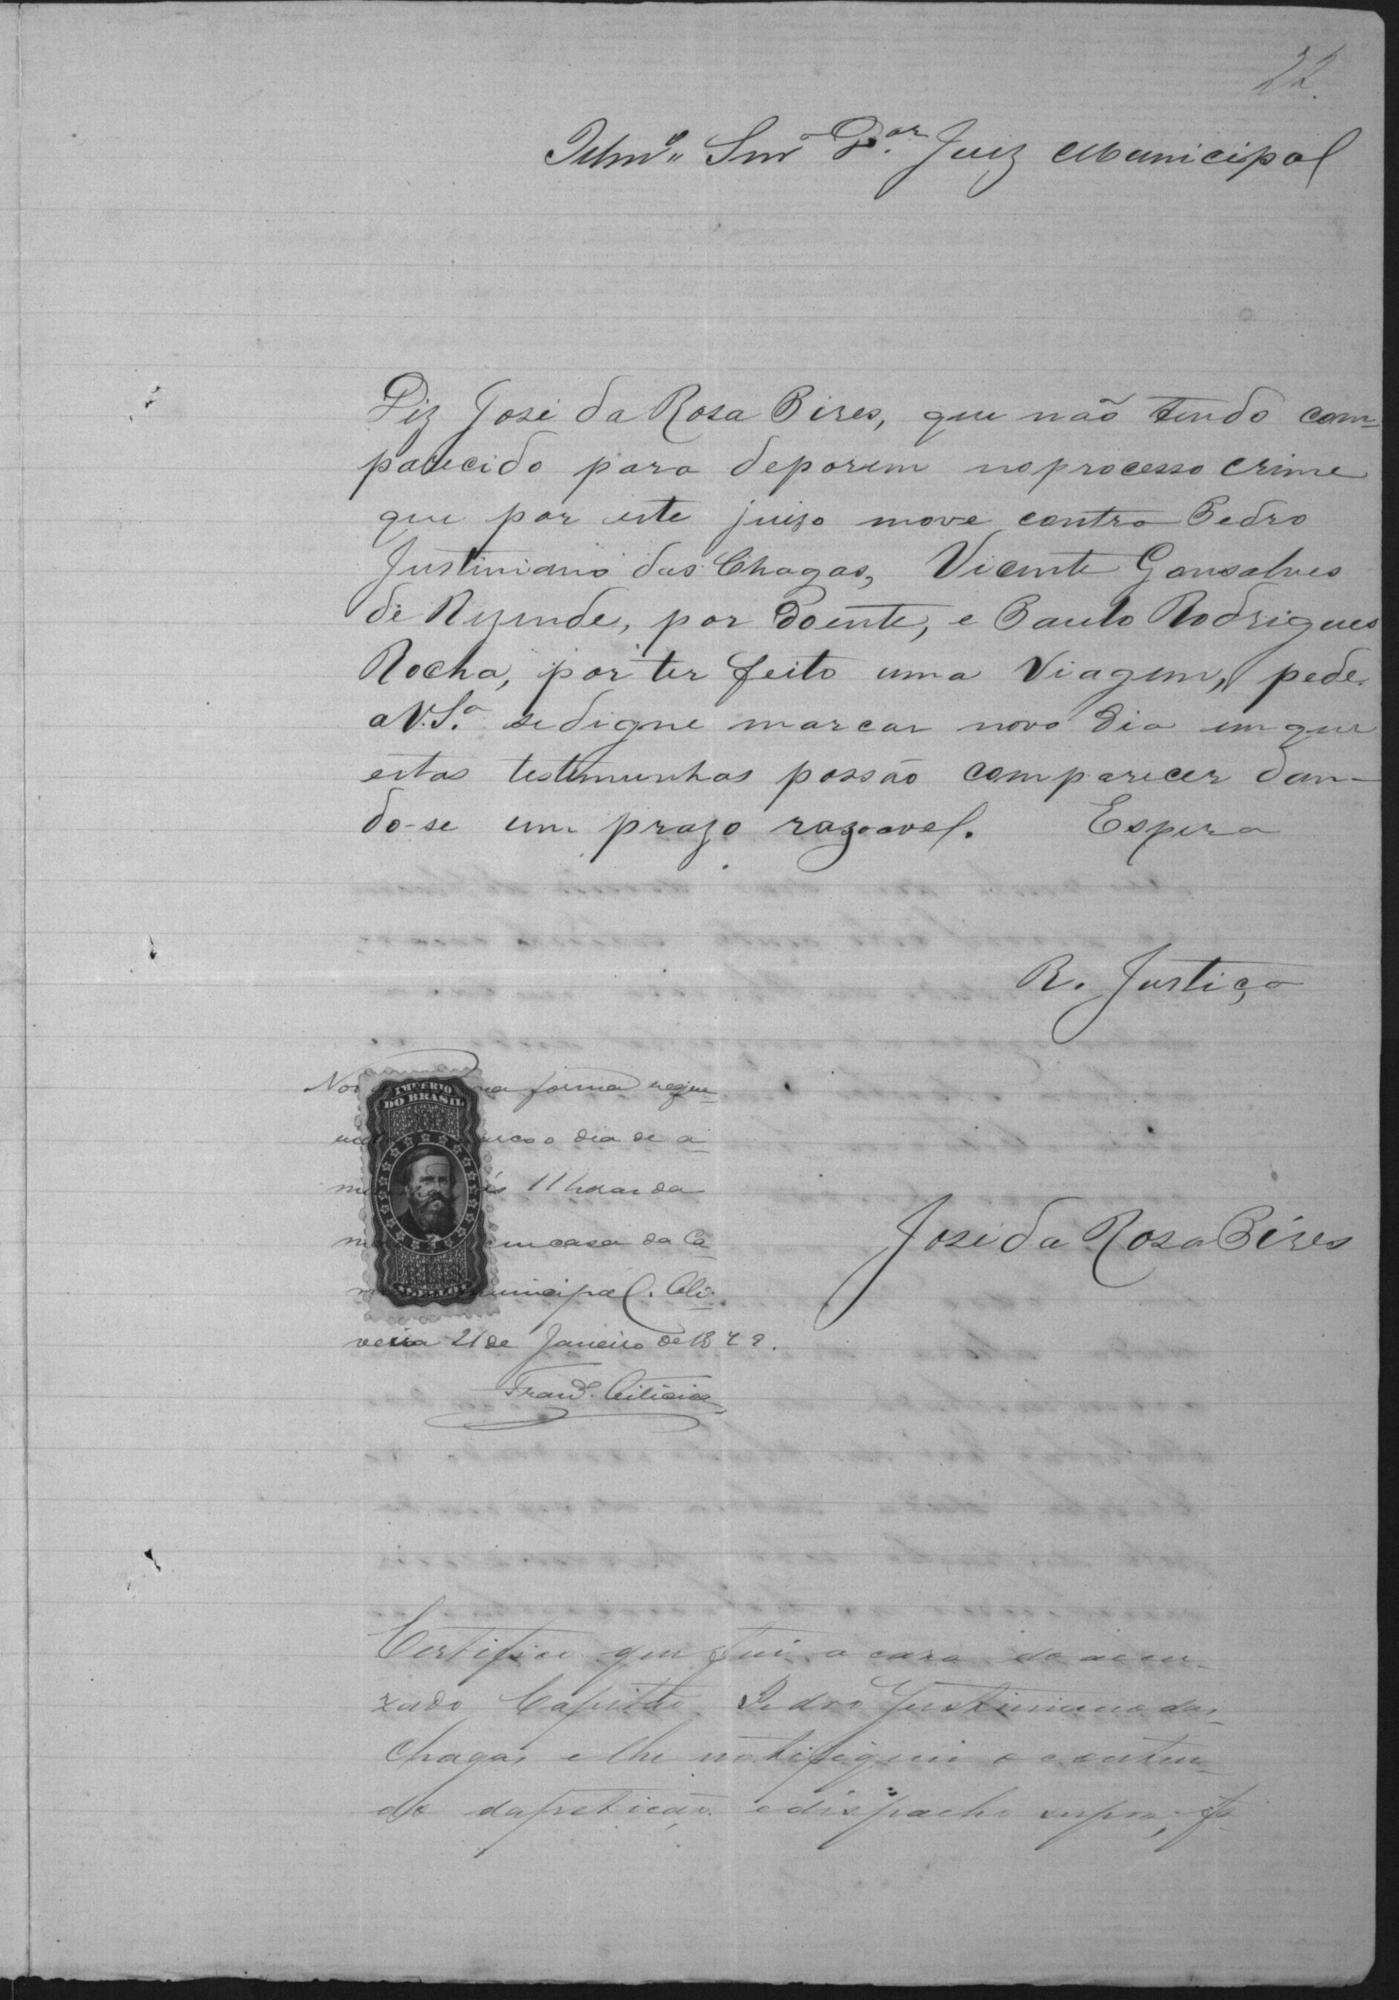 22
Illmº Snr Dor Juiz Municipal
Diz José da Rosa Pires, que não tendo com-
parecido para deporem no processo crime
que por este juizo move contra Pedro
Justiniano das Chagas, Vicente Gonsalves
de Rezende, por Doente, e Paulo Rodrigues
Rocha, por ter feito uma Viagem, pede
a V.Sª se digne marcar novo dia em que
estas testemunhas possão comparecer dan-
do-se um prazo razoavel. Espera
R. Justiça
na forma reque-
o dia de a-
11 horas da
em casa da Ca-
unicipal. Oli-
veira 21 de Janeiro de 1879.
IMPERIO
DO BRASIL
José da Rosa Pires
Certifico que fui a casa do acu-
zado Capitão Pedro Justiniano das
Chagas e lhe notifiquei o conteu-
do da petição e dispacho supra,